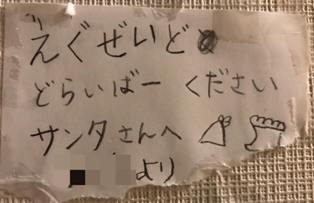 えぐぜいど
どらいばー ください
サンタさんへ
より